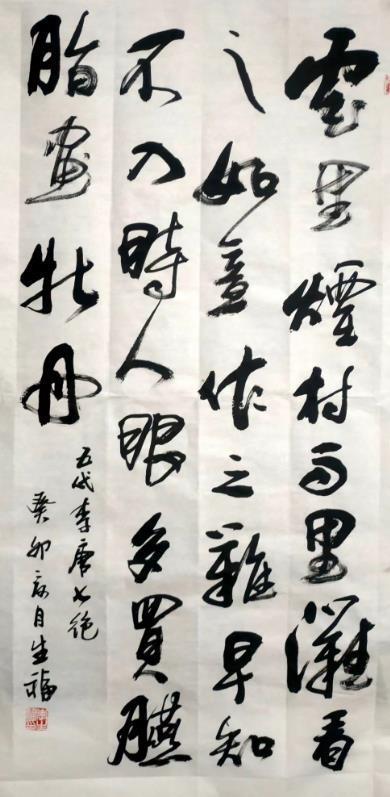 雲里煙村雨里灘看
之如意作之難早知
不入時人眼多買臙
脂畫牡丹
五代李唐七絕
癸卯亥月生福